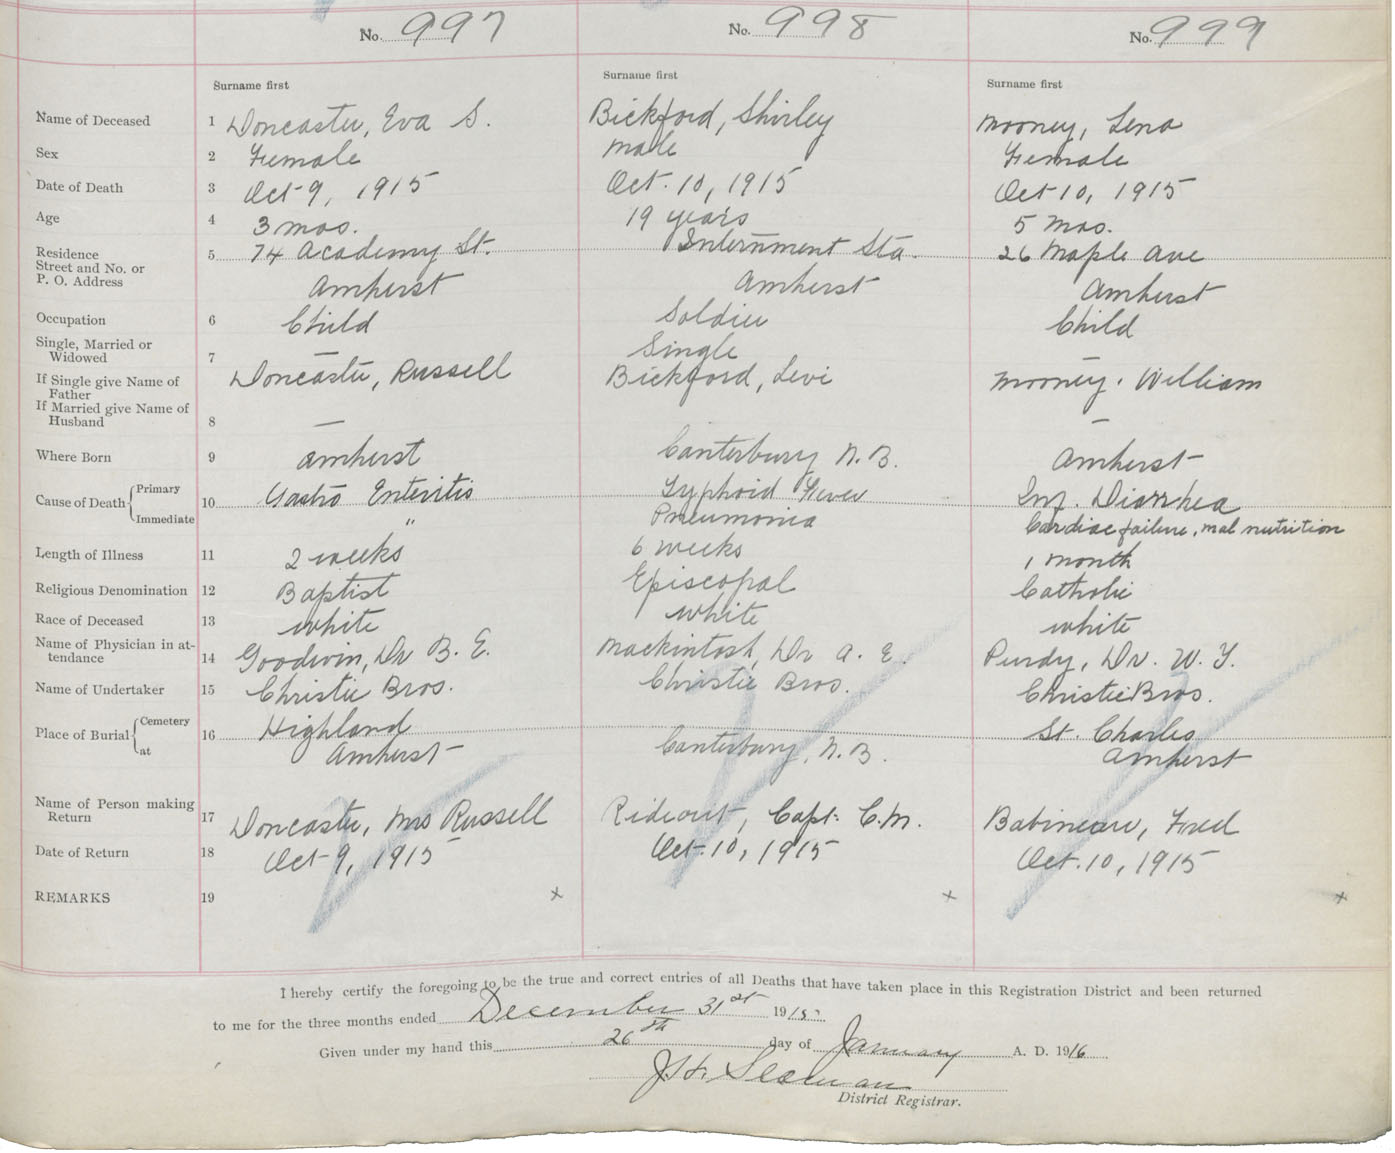 No. 997 No. 998 No. 999
Surname first Surname first Surname first
Name of Deceased 1 Doncaster, Eva S. Bickford, Shirley Mooney, Lena
Sex 2 Female Male Female
Date of Death 3 Oct 9, 1915 Oct. 10, 1915 Oct 10, 1915
Age 4 3 mos. 19 years 5 mos.
Residence
Street and No. or 5 74 Academy St. Internment Sta. 26 Maple Ave
P. O. Address Amherst Amherst Amherst
Occupation 6 Child Soldier Child
Single, Married or
Widowed 7 — Single —
If Single give Name of Doncaster, Russell Bickford, Levi Mooney. William
Father
If Married give Name of
Husband 8 — —
Where Born 9 Amherst Canterbury N.B. Amherst
Cause of Death { Primary 10 Gastro Enteritis Typhoid Fever Inf. Diarrhea
Immediate " Pneumonia Cardiac failure, mal nutrition
Length of Illness 11 2 weeks 6 weeks 1 month
Religious Denomination 12 Baptist Episcopal Catholic
Race of Deceased 13 White White White
Name of Physician in at-
tendance 14 Goodwin, Dr B. E. Mackintosh, Dr A. E. Purdy, Dr. W. Y.
Name of Undertaker 15 Christie Bros. Christie Bros. Christie Bros.
Place of Burial { Cemetery 16 Highland St. Charles
at Amherst Canterbury, N.B. Amherst
Name of Person making
Return 17 Doncaster, Mrs Russell Rideout, Capt. C.M. Babineau, Fred
Date of Return 18 Oct 9, 1915 Oct. 10, 1915 Oct. 10, 1915
REMARKS 19 x x x
I hereby certify the foregoing to be the true and correct entries of all Deaths that have taken place in this Registration District and been returned
to me for the three months ended December 31st 1915
Given under my hand this 26th day of January A. D. 1916
J. H. Seaman
District Registrar.